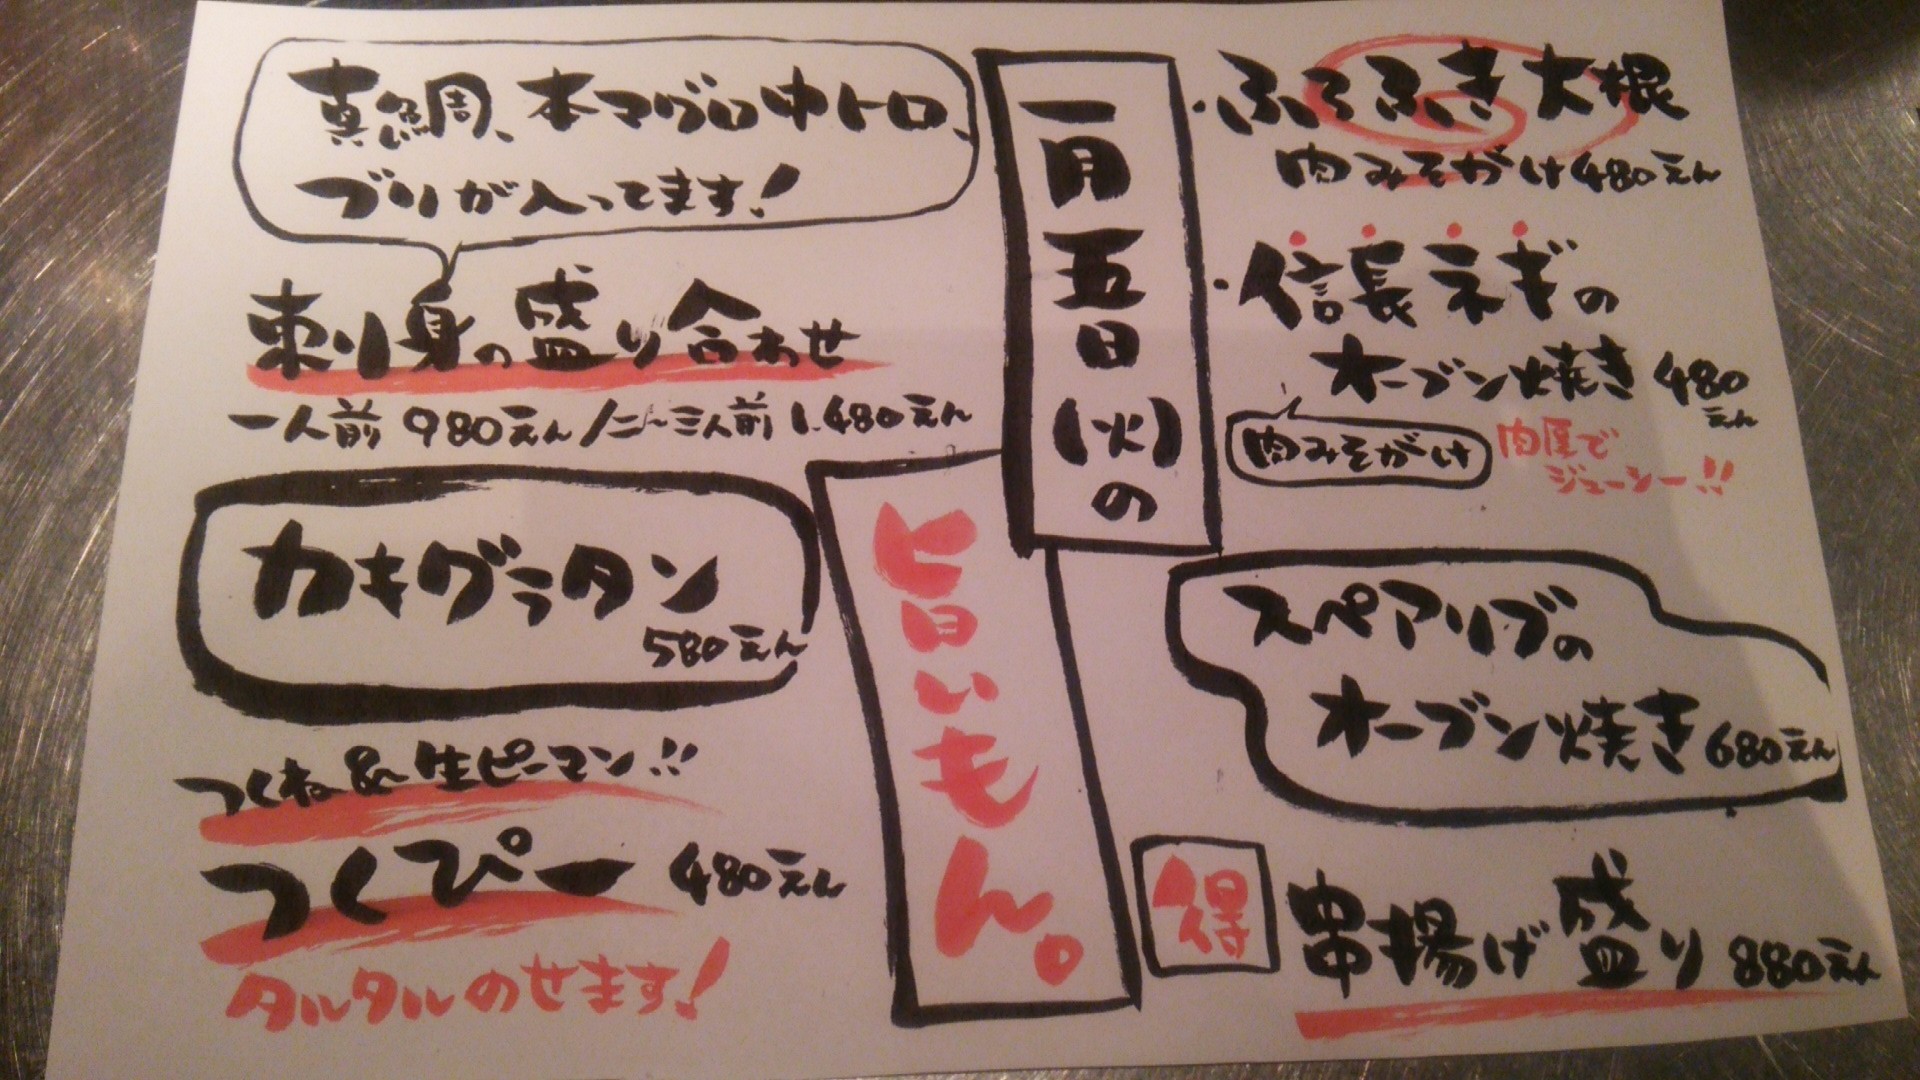 一月五日(火)の
旨いもん。
・ふろふき大根
肉みそがけ480えん
・信長ネギの
オーブン焼き480
えん
肉みそがけ
肉厚で
ジューシー!!
スペアリブの
オーブン焼き680えん
得
串揚げ盛り880えん
真鯛、本マグロ中トロ、
ブリが入ってます!
刺身の盛り合わせ
一人前980えん/二〜三人前1.480えん
カキグラタン
580えん
つくね&生ピーマン!!
つくぴー 480えん
タルタルのせます!